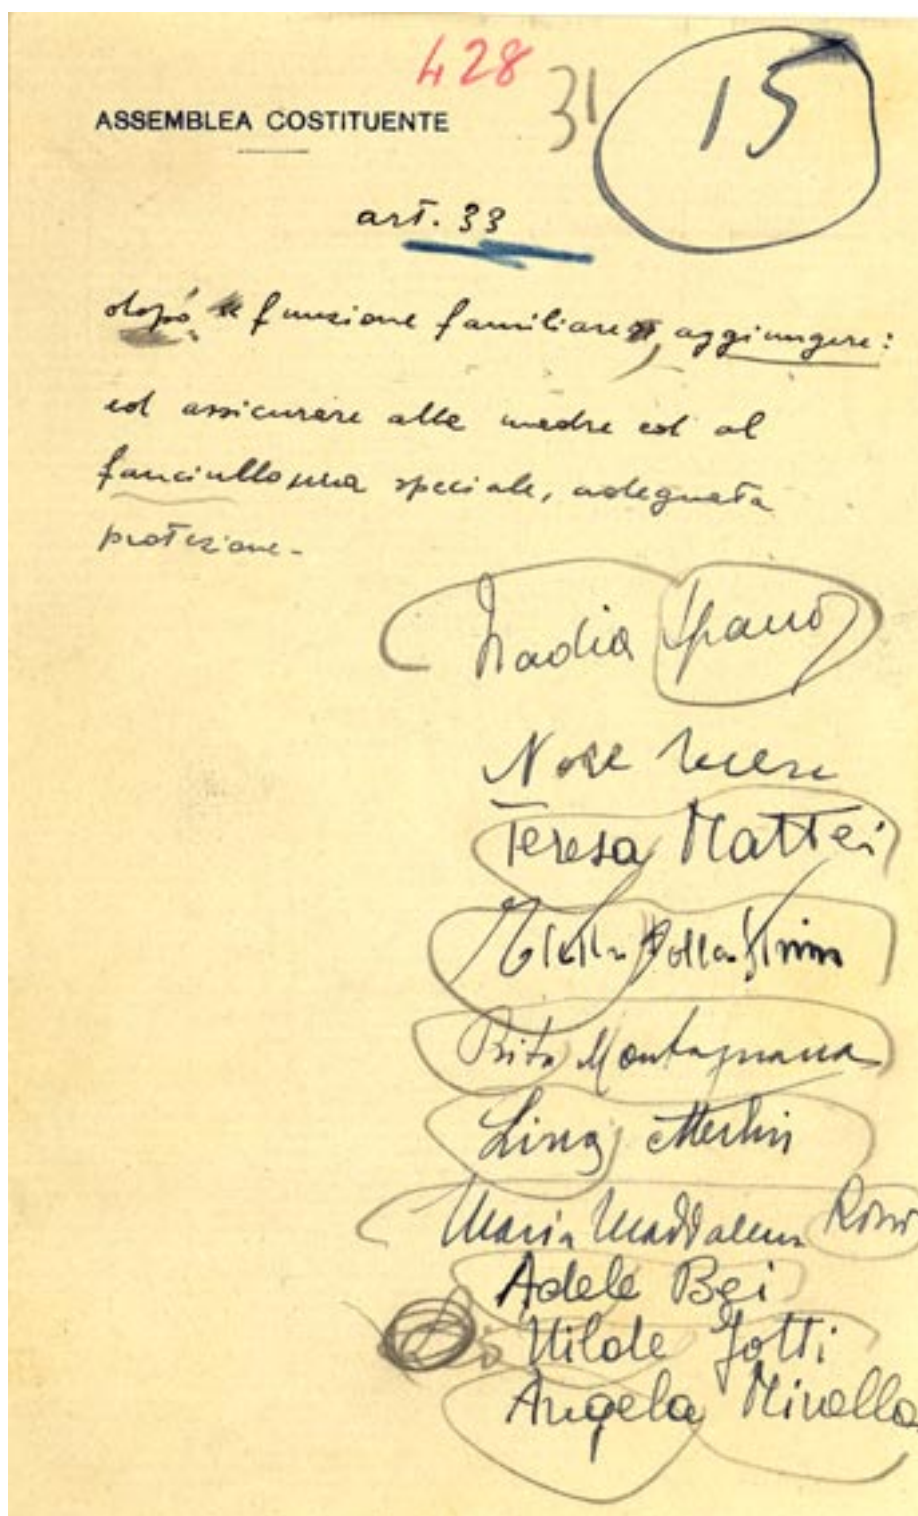 428
31
15
ASSEMBLEA COSTITUENTE
art. 33
dopo funzione familiare, aggiungere:
ed assicurare alla madre ed al
fanciullo una speciale, adeguata
protezione.
Nadia Spano
Noce
Teresa Mattei
Elettra Pollastrini
Rita Montagnana
Lina Merlin
Maria Maddalena Rossi
Adele Bei
Nilde Jotti
Angela Minella